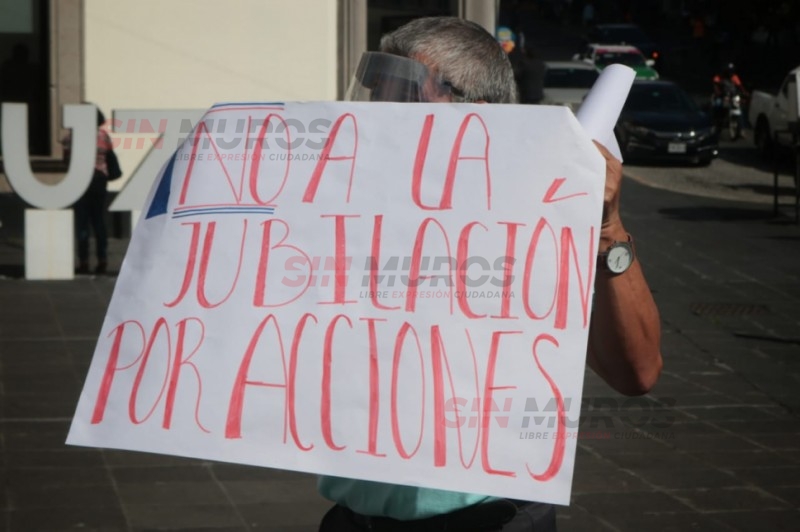 NO A LA
JUBILACIÓN
POR ACCIONES
SIN MUROS
LIBRE EXPRESIÓN CIUDADANA
SIN MUROS
LIBRE EXPRESIÓN CIUDADANA
SIN MUROS
LIBRE EXPRESIÓN CIUDADANA